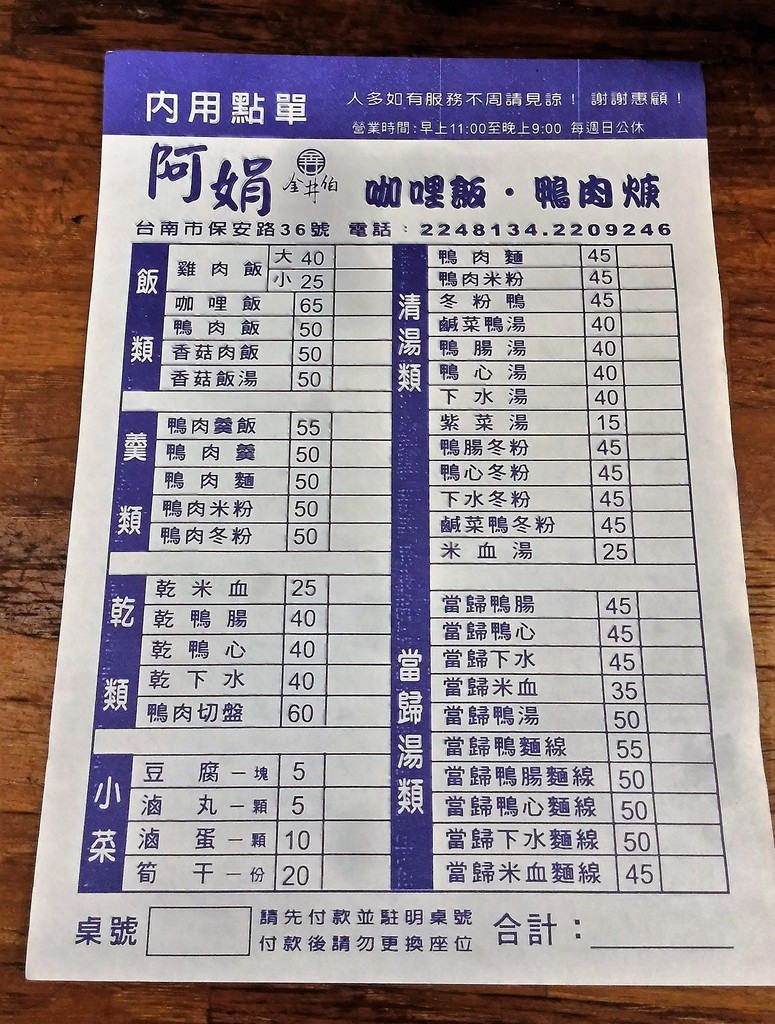 內用點單
人多如有服務不周請見諒！ 謝謝惠顧！
營業時間:早上11:00至晚上9:00 每週日公休
阿娟
金井伯
咖哩飯·鴨肉焿
台南市保安路36號 電話：2248134.2209246
飯類
雞肉飯 大 40
小 25
咖哩飯 65
鴨肉飯 50
香菇肉飯 50
香菇飯湯 50
羹類
鴨肉羹飯 55
鴨肉羹 50
鴨肉麵 50
鴨肉米粉 50
鴨肉冬粉 50
乾類
乾米血 25
乾鴨腸 40
乾鴨心 40
乾下水 40
鴨肉切盤 60
小菜
豆腐一塊 5
滷丸一顆 5
滷蛋一顆 10
筍干一份 20
清湯類
鴨肉麵 45
鴨肉米粉 45
冬粉鴨 45
鹹菜鴨湯 40
鴨腸湯 40
鴨心湯 40
下水湯 40
紫菜湯 15
鴨腸冬粉 45
鴨心冬粉 45
下水冬粉 45
鹹菜鴨冬粉 45
米血湯 25
當歸湯類
當歸鴨腸 45
當歸鴨心 45
當歸下水 45
當歸米血 35
當歸鴨湯 50
當歸鴨麵線 55
當歸鴨腸麵線 50
當歸鴨心麵線 50
當歸下水麵線 50
當歸米血麵線 45
桌號
請先付款並駐明桌號
付款後請勿更換座位
合計：